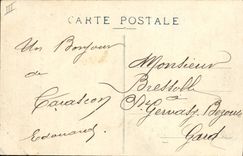 III
CARTE POSTALE
Un Bonjour
de
Tarascon
Edouard
Monsieur
Bressoll
St Gervasy Bezouce
Gard